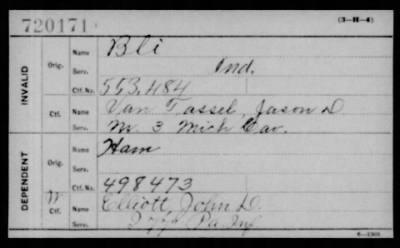 720171
(3-H-4)
INVALID
Orig.
Name
Bli
Serv.
Ind.
Ctf. No.
553,484
Ctf.
Name
Van Tassel, Jason D
Serv.
M. 3 Mich Cav.
DEPENDENT
Orig.
Name
Ham
Serv.
Ctf. No.
498473
W
Ctf.
Name
Elliott, John D.
Serv.
Pa Inf